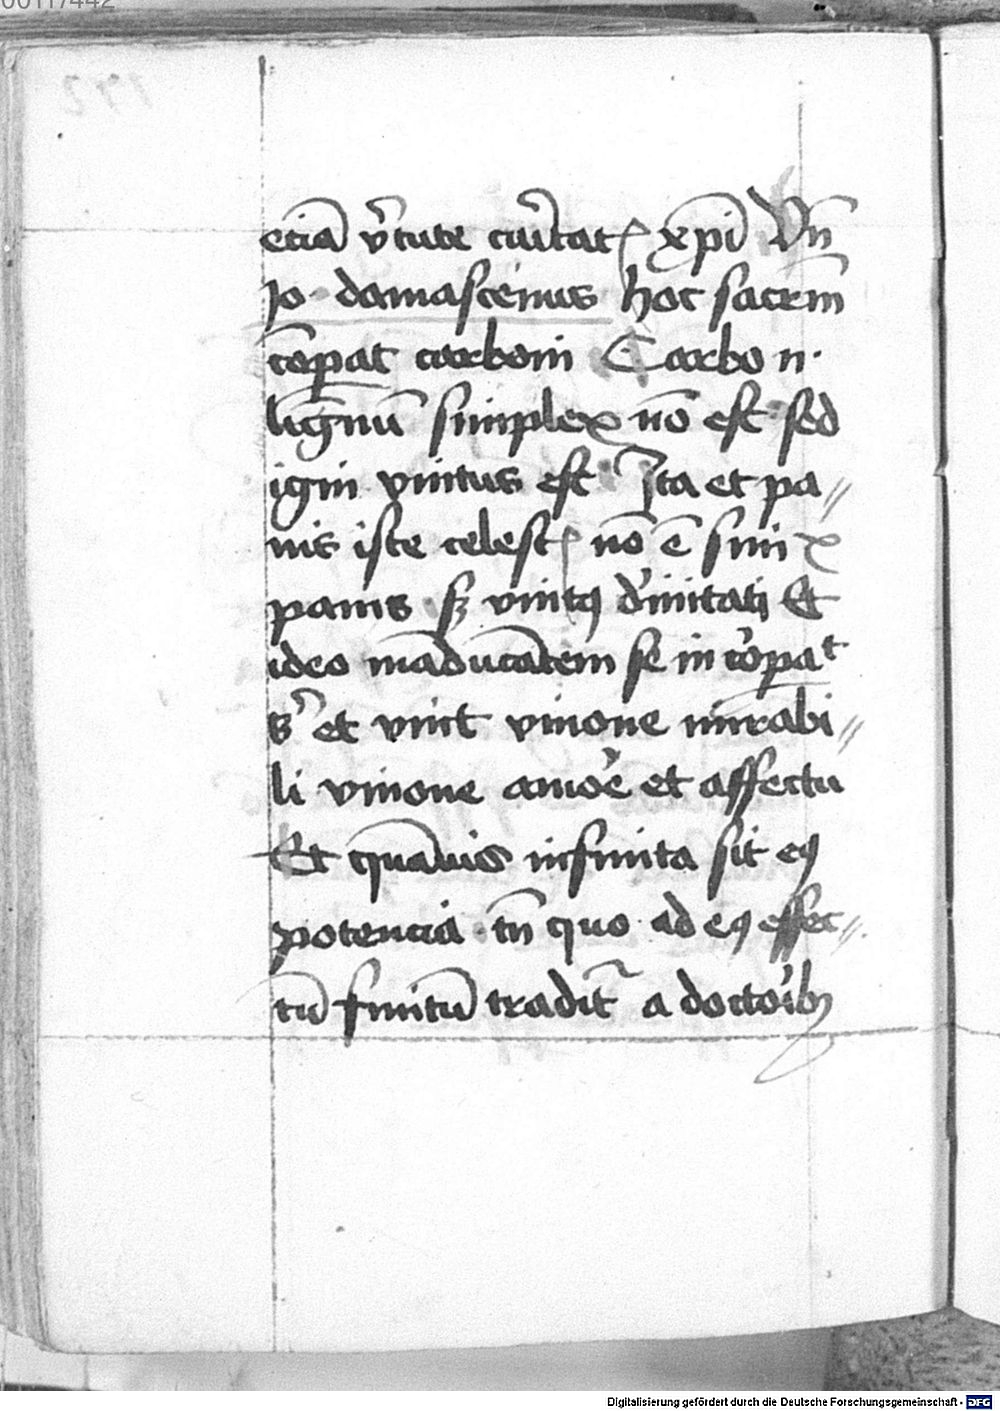 00117442
etiā v̾tute cu̾itatꝭ xp̄i Vn̄
Jo· damascenus hoc sacrm̄
cōꝑat carboni Carbo n·
lignū simplex nō est sed
igni vnitus est· Ita et pa〃
nis iste celestꝭ nō ē simx
panis sꝫ vnitꝯ diuinitati Et
ideo māducātem se in corꝑat
s̾ et vnit vnione mirabi〃
li vnione amore et affectu
Et quāuis infinita sit eꝯ
potencia· tn̄ quo ad eꝯ effec〃
tū finitū tradit̾ a doctoribꝯ
Digitalisierung gefördert durch die Deutsche Forschungsgemeinschaft - DFG